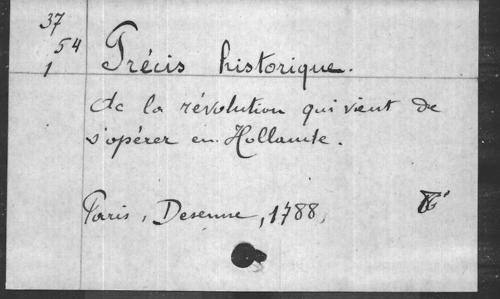 37
54
1
Précis historique.
de la révolution qui vient de
s'opérer en Hollande.
Paris, Desenne, 1788,